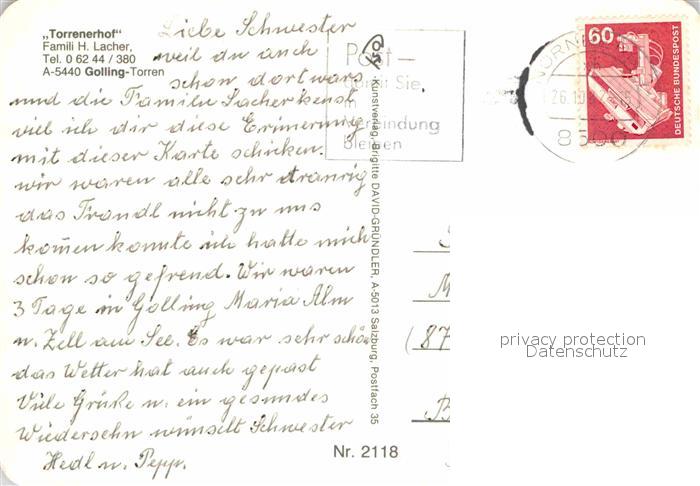 „Torrenerhof"
Famili H. Lacher,
Tel. 0 62 44 / 380
A-5440 Golling-Torren
Liebe Schwester
weil du auch
schon dort wars
und die Familie Lacher kenst
will ich dir diese Erinnerung
mit dieser Karte schicken.
wir waren alle sehr tranrig
das Trandl nicht zu uns
kom̅en konnte ich hatte mich
schon so gefreud. Wir waren
3 Tage in Golling Maria Alm
u. Zell am See. Es war sehr schön
das Wetter hat auch gepast
Viele Grüße u. ein gesundes
Wiedersehn wünselt Schwester
Hedl u. Pepp.
Post
Kunstverlag, Brigitte DAVID-GRÜNDLER, A-5013 Salzburg, Postfach 35
Nr. 2118
Post—
damit Sie
in
Verbindung
bleiben
NÜRN
26.10
8500
60
DEUTSCHE BUNDESPOST
M
(87
B
privacy protection
Datenschutz